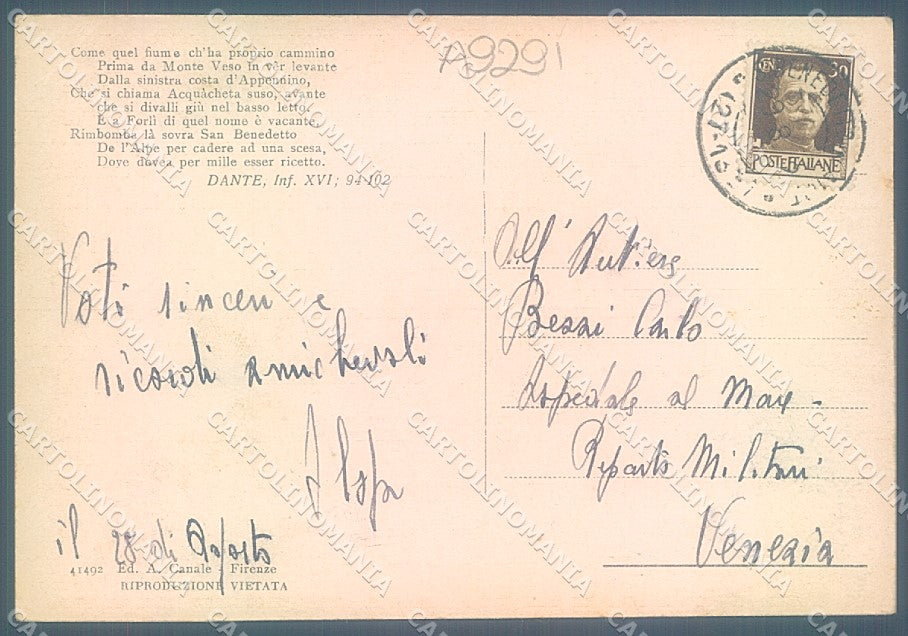 Come quel fiume ch'ha proprio cammino
Prima da Monte Veso in vêr levante
Dalla sinistra costa d'Appennino,
Che si chiama Acquàcheta suso, avante
che si divalli giù nel basso letto,
E a Forlì di quel nome è vacante,
Rimbomba là sovra San Benedetto
De l'Alpe per cadere ad una scesa,
Dove dovea per mille esser ricetto.
DANTE, Inf. XVI; 94-102
9291
30
POSTE ITALIANE
Voti sinceri e
ricordi amichevoli
il 28 di Agosto
41492 Ed. A. Canale - Firenze
RIPRODUZIONE VIETATA
All'
Carlo
Ospedale al Mare -
Reparto Militari
Venezia
CARTOLINOMANIA